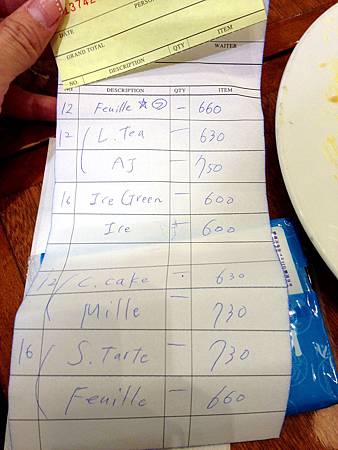 43742
DATE
GRAND TOTAL
NO. DESCRIPTION QTY ITEM
WAITER
NO. DESCRIPTION QTY ITEM
12 Feuille ☆ — 660
12 L. Tea — 630
AJ — 750
16 Ice Green — 600
Ice 600
12 C. cake - 630
Mille — 730
16 S. Tarte — 730
Feuille — 660